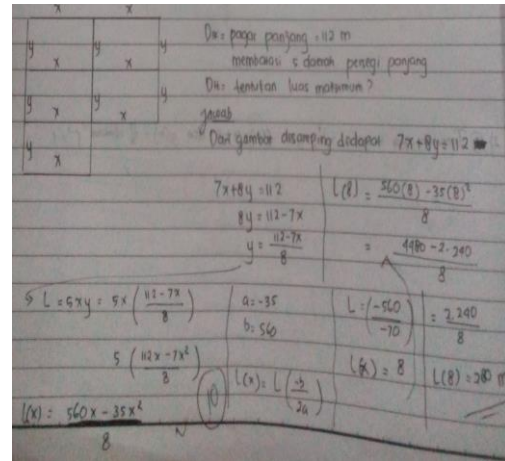 x x
y y y
x x
y y y
x x
y y
x
Dik = pagar panjang = 112 m
membatasi 5 daerah persegi panjang
Dit = tentukan luas maksimum ?
jawab
Dari gambar disamping didapat 7x + 8y = 112
7x + 8y = 112
8y = 112 - 7x
y = 112 - 7x / 8
L(8) = 560(8) - 35(8)² / 8
= 4480 - 2.240 / 8
= 2.240 / 8
L(8) = 280 m
5 L = 5xy = 5x (112 - 7x / 8)
5 (112x - 7x² / 8)
L(x) = 560x - 35x² / 8
a = -35
b = 560
L(x) = L (-b / 2a)
L = (-560 / -70)
L(x) = 8
10